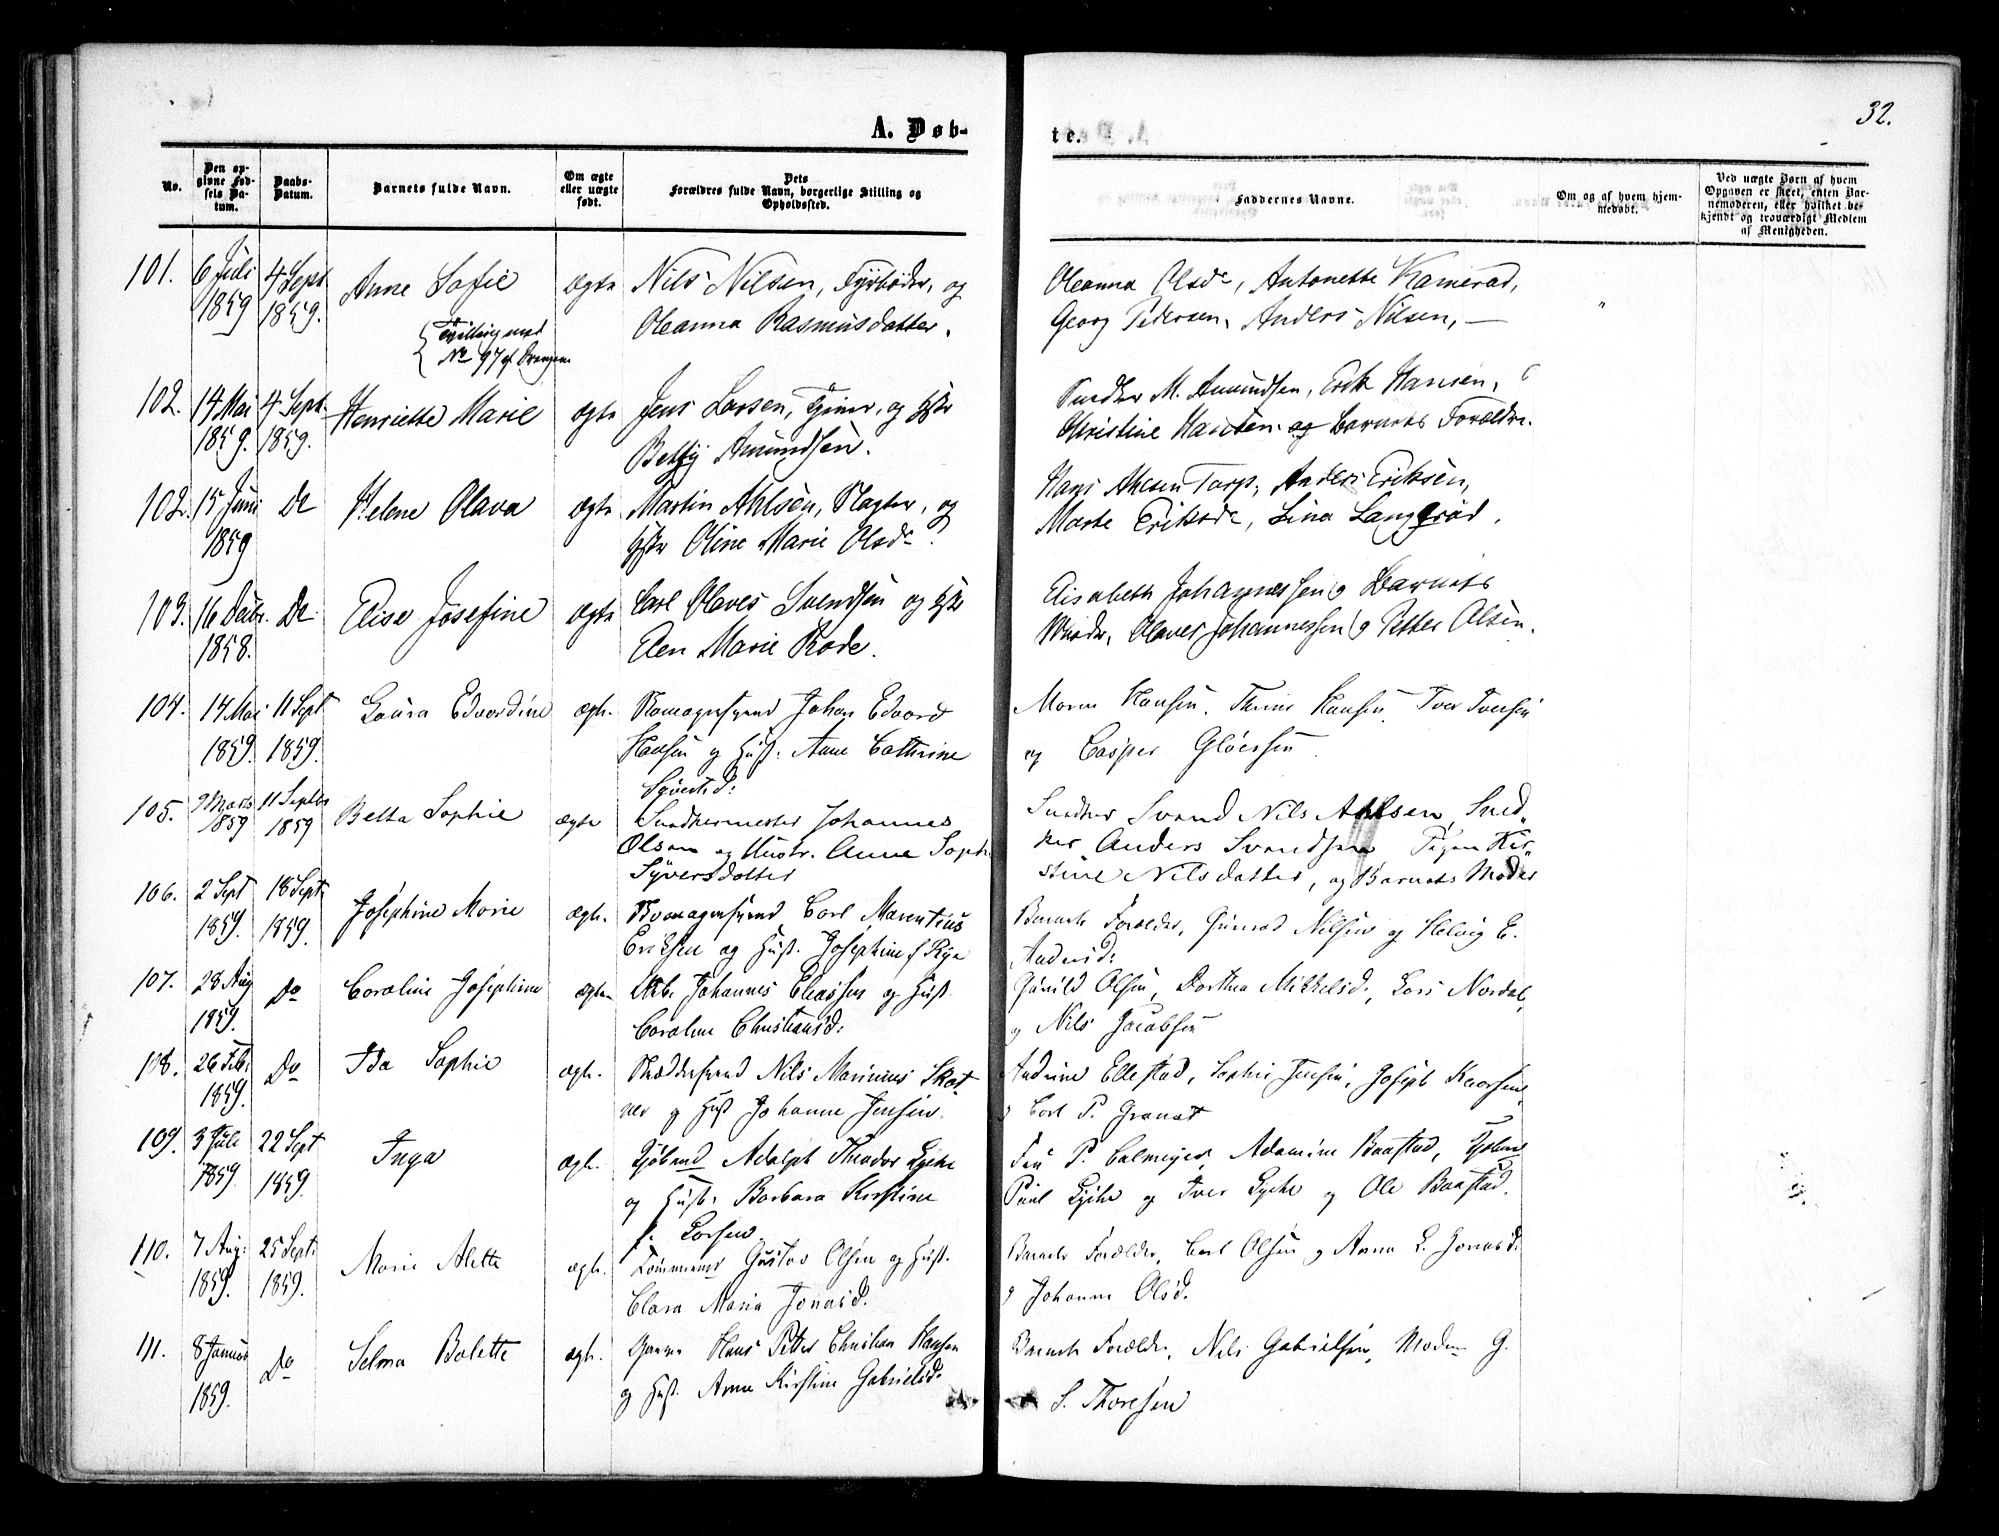 32.
A. Døb-
te.
No.
Den op-
givne Fød-
sels Da-
tum.
Daabs-
Datum.
Barnets fulde Navn.
Om ægte
eller uægte
født.
Dets
Forældres fulde Navn, borgerlige Stilling og
Opholdssted.
Faddernes Navne.
Om og af hvem hjem-
medøbt.
Ved uægte Børn af hvem
Opgaven er skeet, enten Bar-
nemoderen, eller hvilket be-
kjendt og troværdigt Medlem
af Menigheden.
101. 6 Juli 4 Sept. Anne Sofie ægte Nils Nilsen, Fyrbøder, og
1859 1859. Oleanna Rasmusdatter.
(Tvilling med
No 97 Drengen
Oleanna Olsdr, Antonette Kamerad,
Georg Pedersen, Anders Nilsen, —
102. 14 Mai 4 Sept. Henriette Marie ægte Jens Larsen, Tjener, og Hstr
1859. 1859. Betsy Amundsen.
Snedker M. Amundsen, Erik Hansen,
Christine Hansen og Barnets Forældre.
102. 15 Juni Do Helene Olava ægte Martin Ahlsen, Slagter, og
1859 Hstr Oline Marie Olsdr.
Hans Ahlsen Torp, Anders Eriksen,
Marte Eriksdr, Lina Langgrød.
103. 16 Decbr. Do Elise Josefine ægte Carl Olaves Svendsen og Hstr
1858. Elen Marie Rode.
Elisabeth Johannessen, Barnets
Moder, Olaves Johannessen, Petter Olsen.
104. 14 Mai 11 Sept Laura Edvardine ægte. Skomagersvend Johan Edvard
1859. 1859. Hansen og Hust. Anne Cathrine
Syversd:
Maren Hansen, Thrine Hansen, Iver Iversen
og Casper Gløersen.
105. 9 Marts 11 Septbr Betta Sophie ægte Snedkermester Johannes
1859 1859 Olsen og Hustr. Anne Soph.
Syversdatter
Snedker Svend Nils Ahlsen, Sned-
ker Anders Svendsen Pigen Kir-
stine Nilsdatter, og Barnets Moder
106. 2 Sept 18 Sept. Josephine Marie ægte. Skomagersvend Carl Marentius
1859. 1859. Eriksen og Hust. Josephine f Rye
Barnets Forældre, Gunerod Nilsen og Helvig E.
Andersd:
107. 28 Aug Do Caroline Josephine ægte. Arb. Johannes Eliassen og Hust.
1859. Caroline Christiansd:
Gunild Olsen, Dorthea Mikkelsd., Lars Nordal,
og Nils Jacobsen
108. 26 Feb. Do Ida Sophie ægte. Skræddersvend Nils Marinius Skot
1859. ner og Hust Johanne Jensen.
Andrine Ellestad, Sophie Jensen, Joseph
og Carl P. Granat
109. 3 Juli 22 Sept Inga ægte. Sjømand Adolph Theodor Lyche
1859. 1859. og Hust: Barbara Kirstine
f. Larsen
Fru P. Calmeyer, Adamine Baastad,
Paul Lyche og Iver Lyche og Ole Baastad.
110. 7 Aug: 25 Sept. Marie Alette ægte. Tømmermd Gustav Olsen og Hust.
1859. 1859. Clara Maria Jonasd.
Barnets Forældre, Carl Olsen og Anna L. Jonasd.
og Johanne Olsd.
111. 8 Januar Do Selma Bolette ægte. Hans Petter Christian Hansen
1859. og Hust. Anne Kirstine Gabrielsd.
Barnets Forældre, Nils Gabrielsen, Madm G.
S. Thoresen